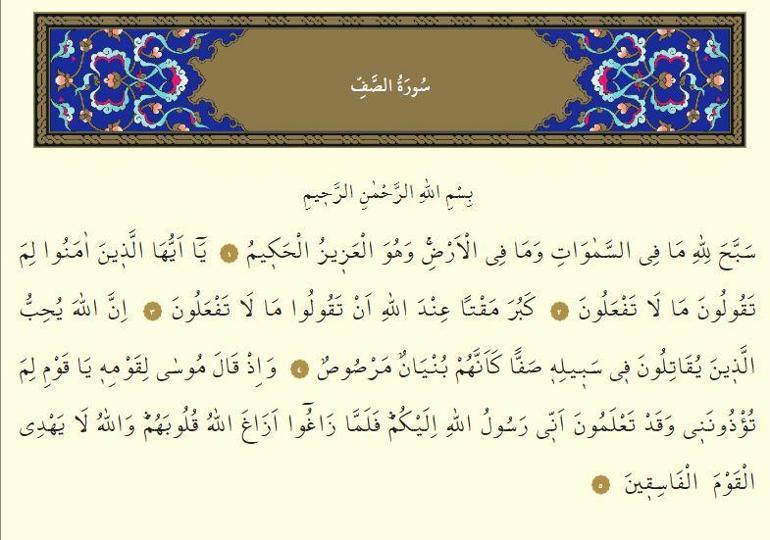 سُورَةُ الصَّفِّ
بِسْمِ اللهِ الرَّحْمٰنِ الرَّحٖيمِ
سَبَّحَ لِلّٰهِ مَا فِى السَّمٰوَاتِ وَمَا فِى الْاَرْضِۚ وَهُوَ الْعَزٖيزُ الْحَكٖيمُ ١ يَٓا اَيُّهَا الَّذٖينَ اٰمَنُوا لِمَ
تَقُولُونَ مَا لَا تَفْعَلُونَ ٢ كَبُرَ مَقْتًا عِنْدَ اللهِ اَنْ تَقُولُوا مَا لَا تَفْعَلُونَ ٣ اِنَّ اللهَ يُحِبُّ
الَّذٖينَ يُقَاتِلُونَ فٖى سَبٖيلِهٖ صَفًّا كَاَنَّهُمْ بُنْيَانٌ مَرْصُوصٌ ٤ وَاِذْ قَالَ مُوسٰى لِقَوْمِهٖ يَا قَوْمِ لِمَ
تُؤْذُونَنٖى وَقَدْ تَعْلَمُونَ اَنّٖى رَسُولُ اللهِ اِلَيْكُمْؕ فَلَمَّا زَاغُٓوا اَزَاغَ اللهُ قُلُوبَهُمْؕ وَاللهُ لَا يَهْدِى
الْقَوْمَ الْفَاسِقٖينَ ٥